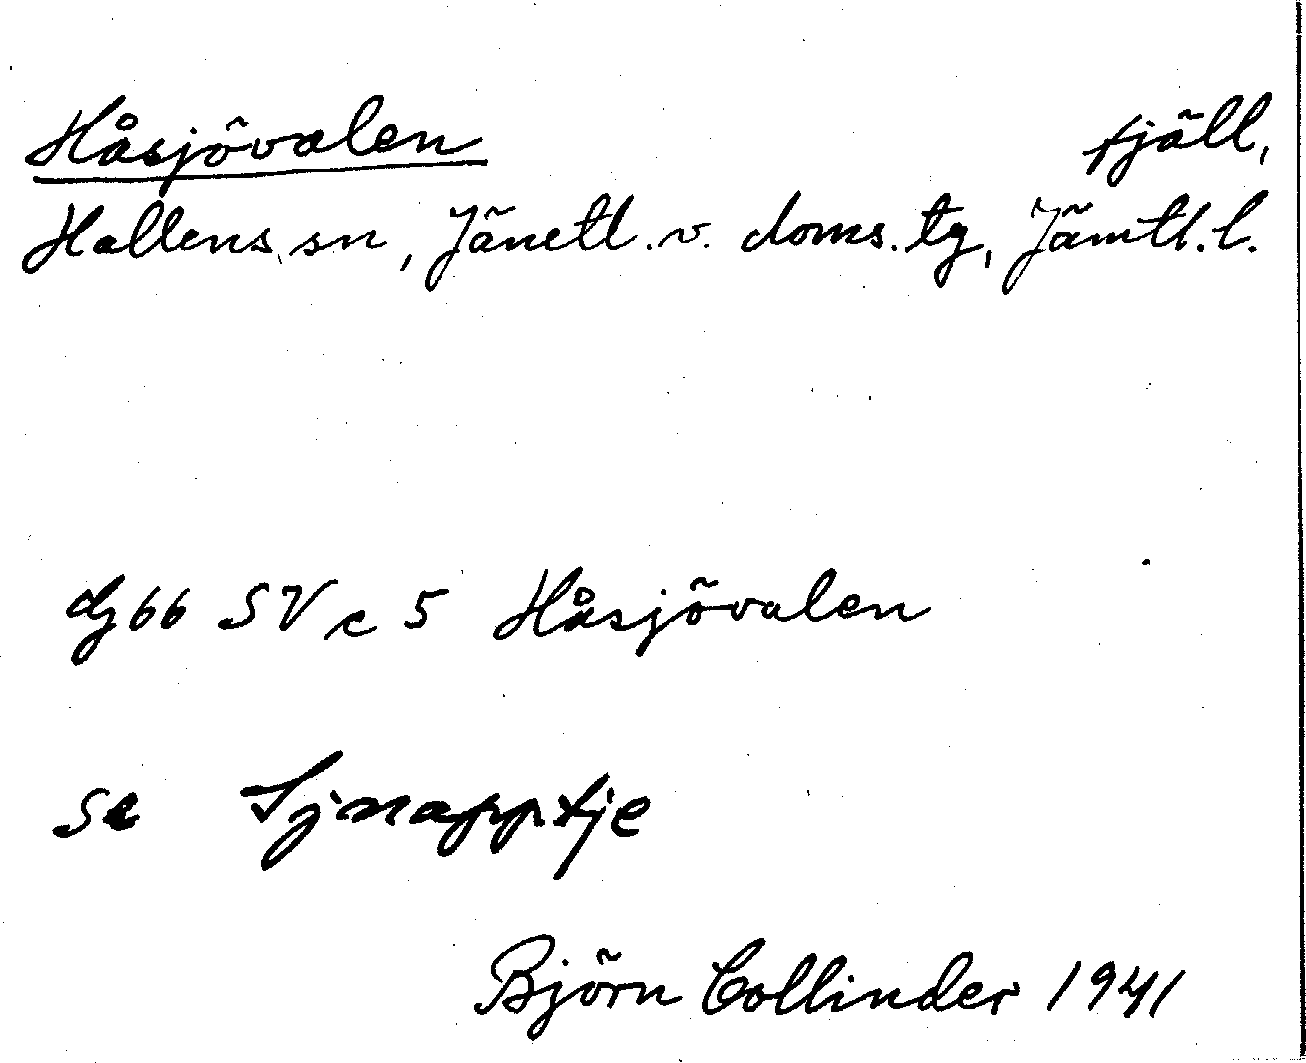 Håsjövalen fjäll,
Hallens sn, Jämtl. v. doms. tg, Jämtl. l.
dg 66 SV c 5 Håsjövalen
se
Björn Collinder 1941